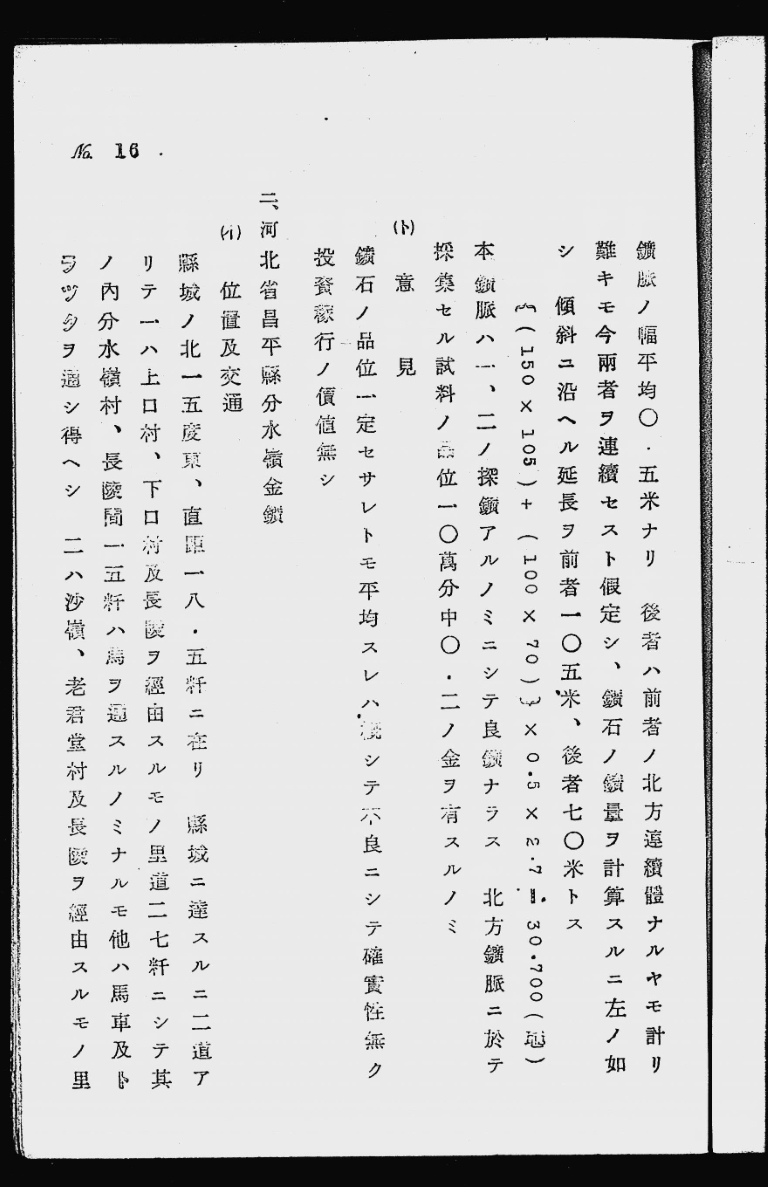 No. 16
鑛脈ノ幅平均〇．五米ナリ　後者ハ前者ノ北方連續體ナルヤモ計リ
難キモ今兩者ヲ連續セスト假定シ、鑛石ノ鑛量ヲ計算スルニ左ノ如
シ　傾斜ニ沿ヘル延長ヲ前者一〇五米、後者七〇米トス
{(150×105)+(100×70)}×0.5×2.7=30.700(瓲)
本鑛脈ハ一、二ノ探鑛アルノミニシテ良鑛ナラス　北方鑛脈ニ於テ
採集セル試料ノ品位一〇萬分中〇．二ノ金ヲ有スルノミ
(ト)　意　見
鑛石ノ品位一定セサレトモ平均スレハ概シテ不良ニシテ確實性無ク
投資稼行ノ價値無シ
二、河北省昌平縣分水嶺金鑛
(イ)　位置及交通
縣城ノ北一五度東、直距一八．五粁ニ在リ　縣城ニ達スルニ二道ア
リテ一ハ上口村、下口村及長陵ヲ經由スルモノ里道二七粁ニシテ其
ノ內分水嶺村、長陵間一五粁ハ馬ヲ通スルノミナルモ他ハ馬車及ト
ラツクヲ通シ得ヘシ　二ハ沙嶺、老君堂村及長陵ヲ經由スルモノ里